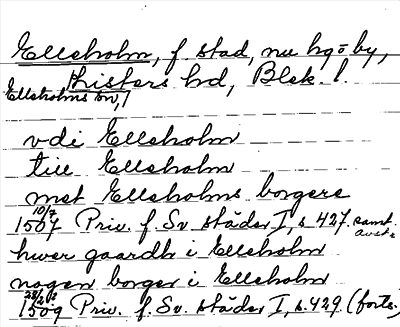 Elleholm, f. stad, nu hg o by,
Listers hd, Blek. l.
Elleholms sn,
vdi Elleholm
till Elleholm
met Elleholms borgere
10/7
1507 Priv. f. Sv städer I, s. 427. samt. avskr.
hwer gaardh i Elleholm
nogen borger i Elleholm
1509 Priv. f. Sv. städer I, s. 429. (forts.)